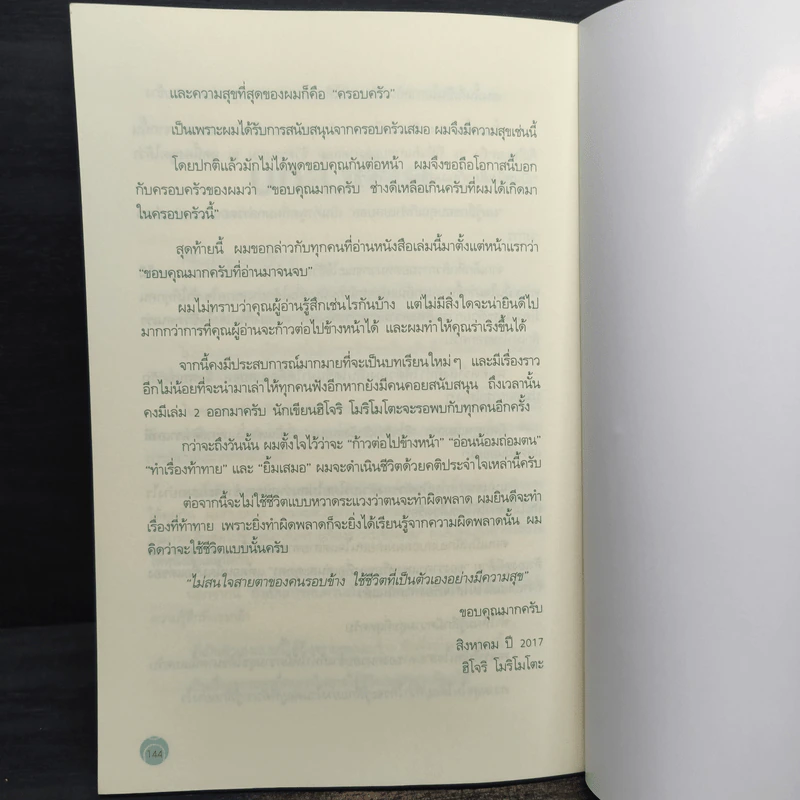 และความสุขที่สุดของผมก็คือ “ครอบครัว”
เป็นเพราะผมได้รับการสนับสนุนจากครอบครัวเสมอ ผมจึงมีความสุขเช่นนี้
โดยปกติแล้วมักไม่ได้พูดขอบคุณกันต่อหน้า ผมจึงขอถือโอกาสนี้บอก
กับครอบครัวของผมว่า “ขอบคุณมากครับ ช่างดีเหลือเกินครับที่ผมได้เกิดมา
ในครอบครัวนี้”
สุดท้ายนี้ ผมขอกล่าวกับทุกคนที่อ่านหนังสือเล่มนี้มาตั้งแต่หน้าแรกว่า
“ขอบคุณมากครับที่อ่านมาจนจบ”
ผมไม่ทราบว่าคุณผู้อ่านรู้สึกเช่นไรกันบ้าง แต่ไม่มีสิ่งใดจะน่ายินดีไป
มากกว่าการที่คุณผู้อ่านจะก้าวต่อไปข้างหน้าได้ และผมทำให้คุณร่าเริงขึ้นได้
จากนี้คงมีประสบการณ์มากมายที่จะเป็นบทเรียนใหม่ๆ และมีเรื่องราว
อีกไม่น้อยที่จะนำมาเล่าให้ทุกคนฟังอีกหากยังมีคนคอยสนับสนุน ถึงเวลานั้น
คงมีเล่ม 2 ออกมาครับ นักเขียนฮิโจริ โมริโมโตะจะรอพบกับทุกคนอีกครั้ง
กว่าจะถึงวันนั้น ผมตั้งใจไว้ว่าจะ “ก้าวต่อไปข้างหน้า” “อ่อนน้อมถ่อมตน”
“ทำเรื่องท้าทาย” และ “ยิ้มเสมอ” ผมจะดำเนินชีวิตด้วยคติประจำใจเหล่านี้ครับ
ต่อจากนี้จะไม่ใช้ชีวิตแบบหวาดระแวงว่าตนจะทำผิดพลาด ผมยินดีจะทำ
เรื่องที่ท้าทาย เพราะยิ่งทำผิดพลาดก็จะยิ่งได้เรียนรู้จากความผิดพลาดนั้น ผม
คิดว่าจะใช้ชีวิตแบบนั้นครับ
“ไม่สนใจสายตาของคนรอบข้าง ใช้ชีวิตที่เป็นตัวเองอย่างมีความสุข”
ขอบคุณมากครับ
สิงหาคม ปี 2017
ฮิโจริ โมริโมโตะ
144